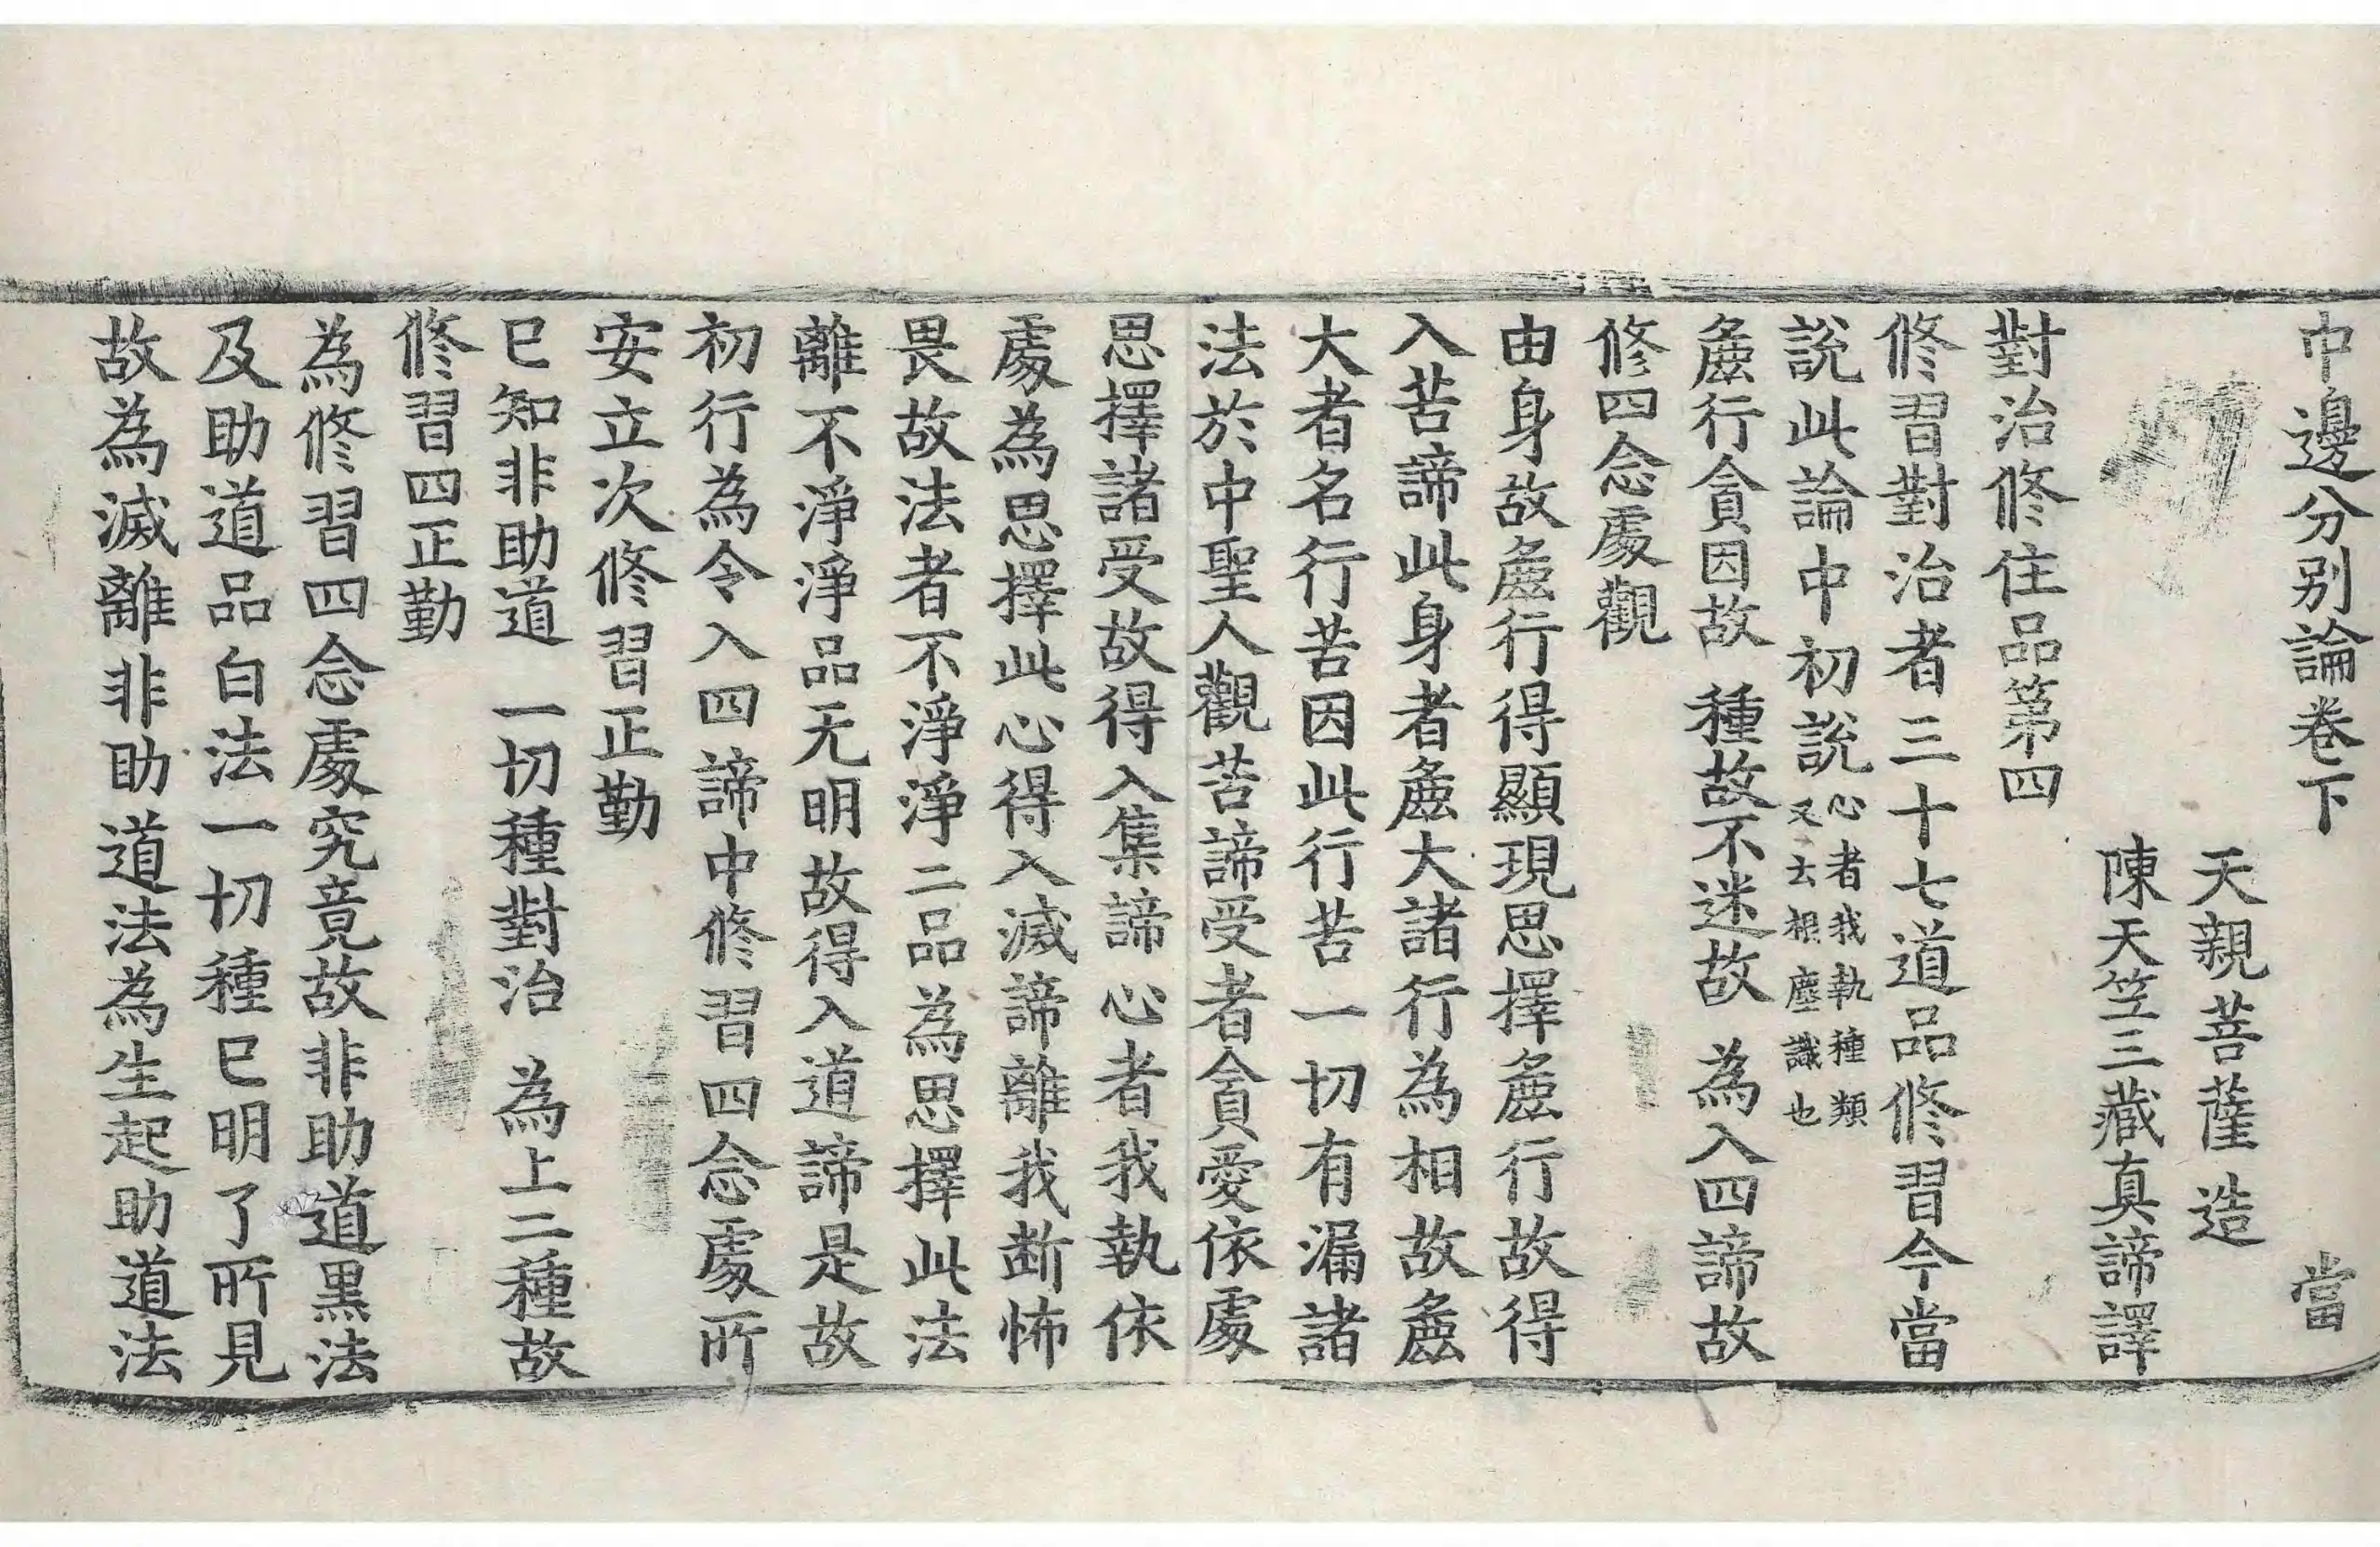 中邊分别論卷下 當
天親菩薩造
陳天竺三藏真諦譯
對治修住品第四
修習對治者三十七道品修習今當
說此論中初說心者我執種類又云根塵識也
麁行貪因故 種故不迷故 為入四諦故
修四念處觀
由身故麁行得顯現思擇麁行故得
入苦諦此身者麁大諸行為相故麁
大者名行苦因此行苦一切有漏諸
法於中聖人觀苦諦受者貪愛依處
思擇諸受故得入集諦心者我執依
處為思擇此心得入滅諦離我断怖
畏故法者不淨淨二品為思擇此法
離不淨淨品无明故得入道諦是故
初行為令入四諦中修習四念處所
安立次修習正勤
已知非助道 一切種對治 為上二種故
修習四正勤
為修習四念處究竟故非助道黒法
及助道品白法一切種已明了所見
故為滅離非助道法為生起助道法